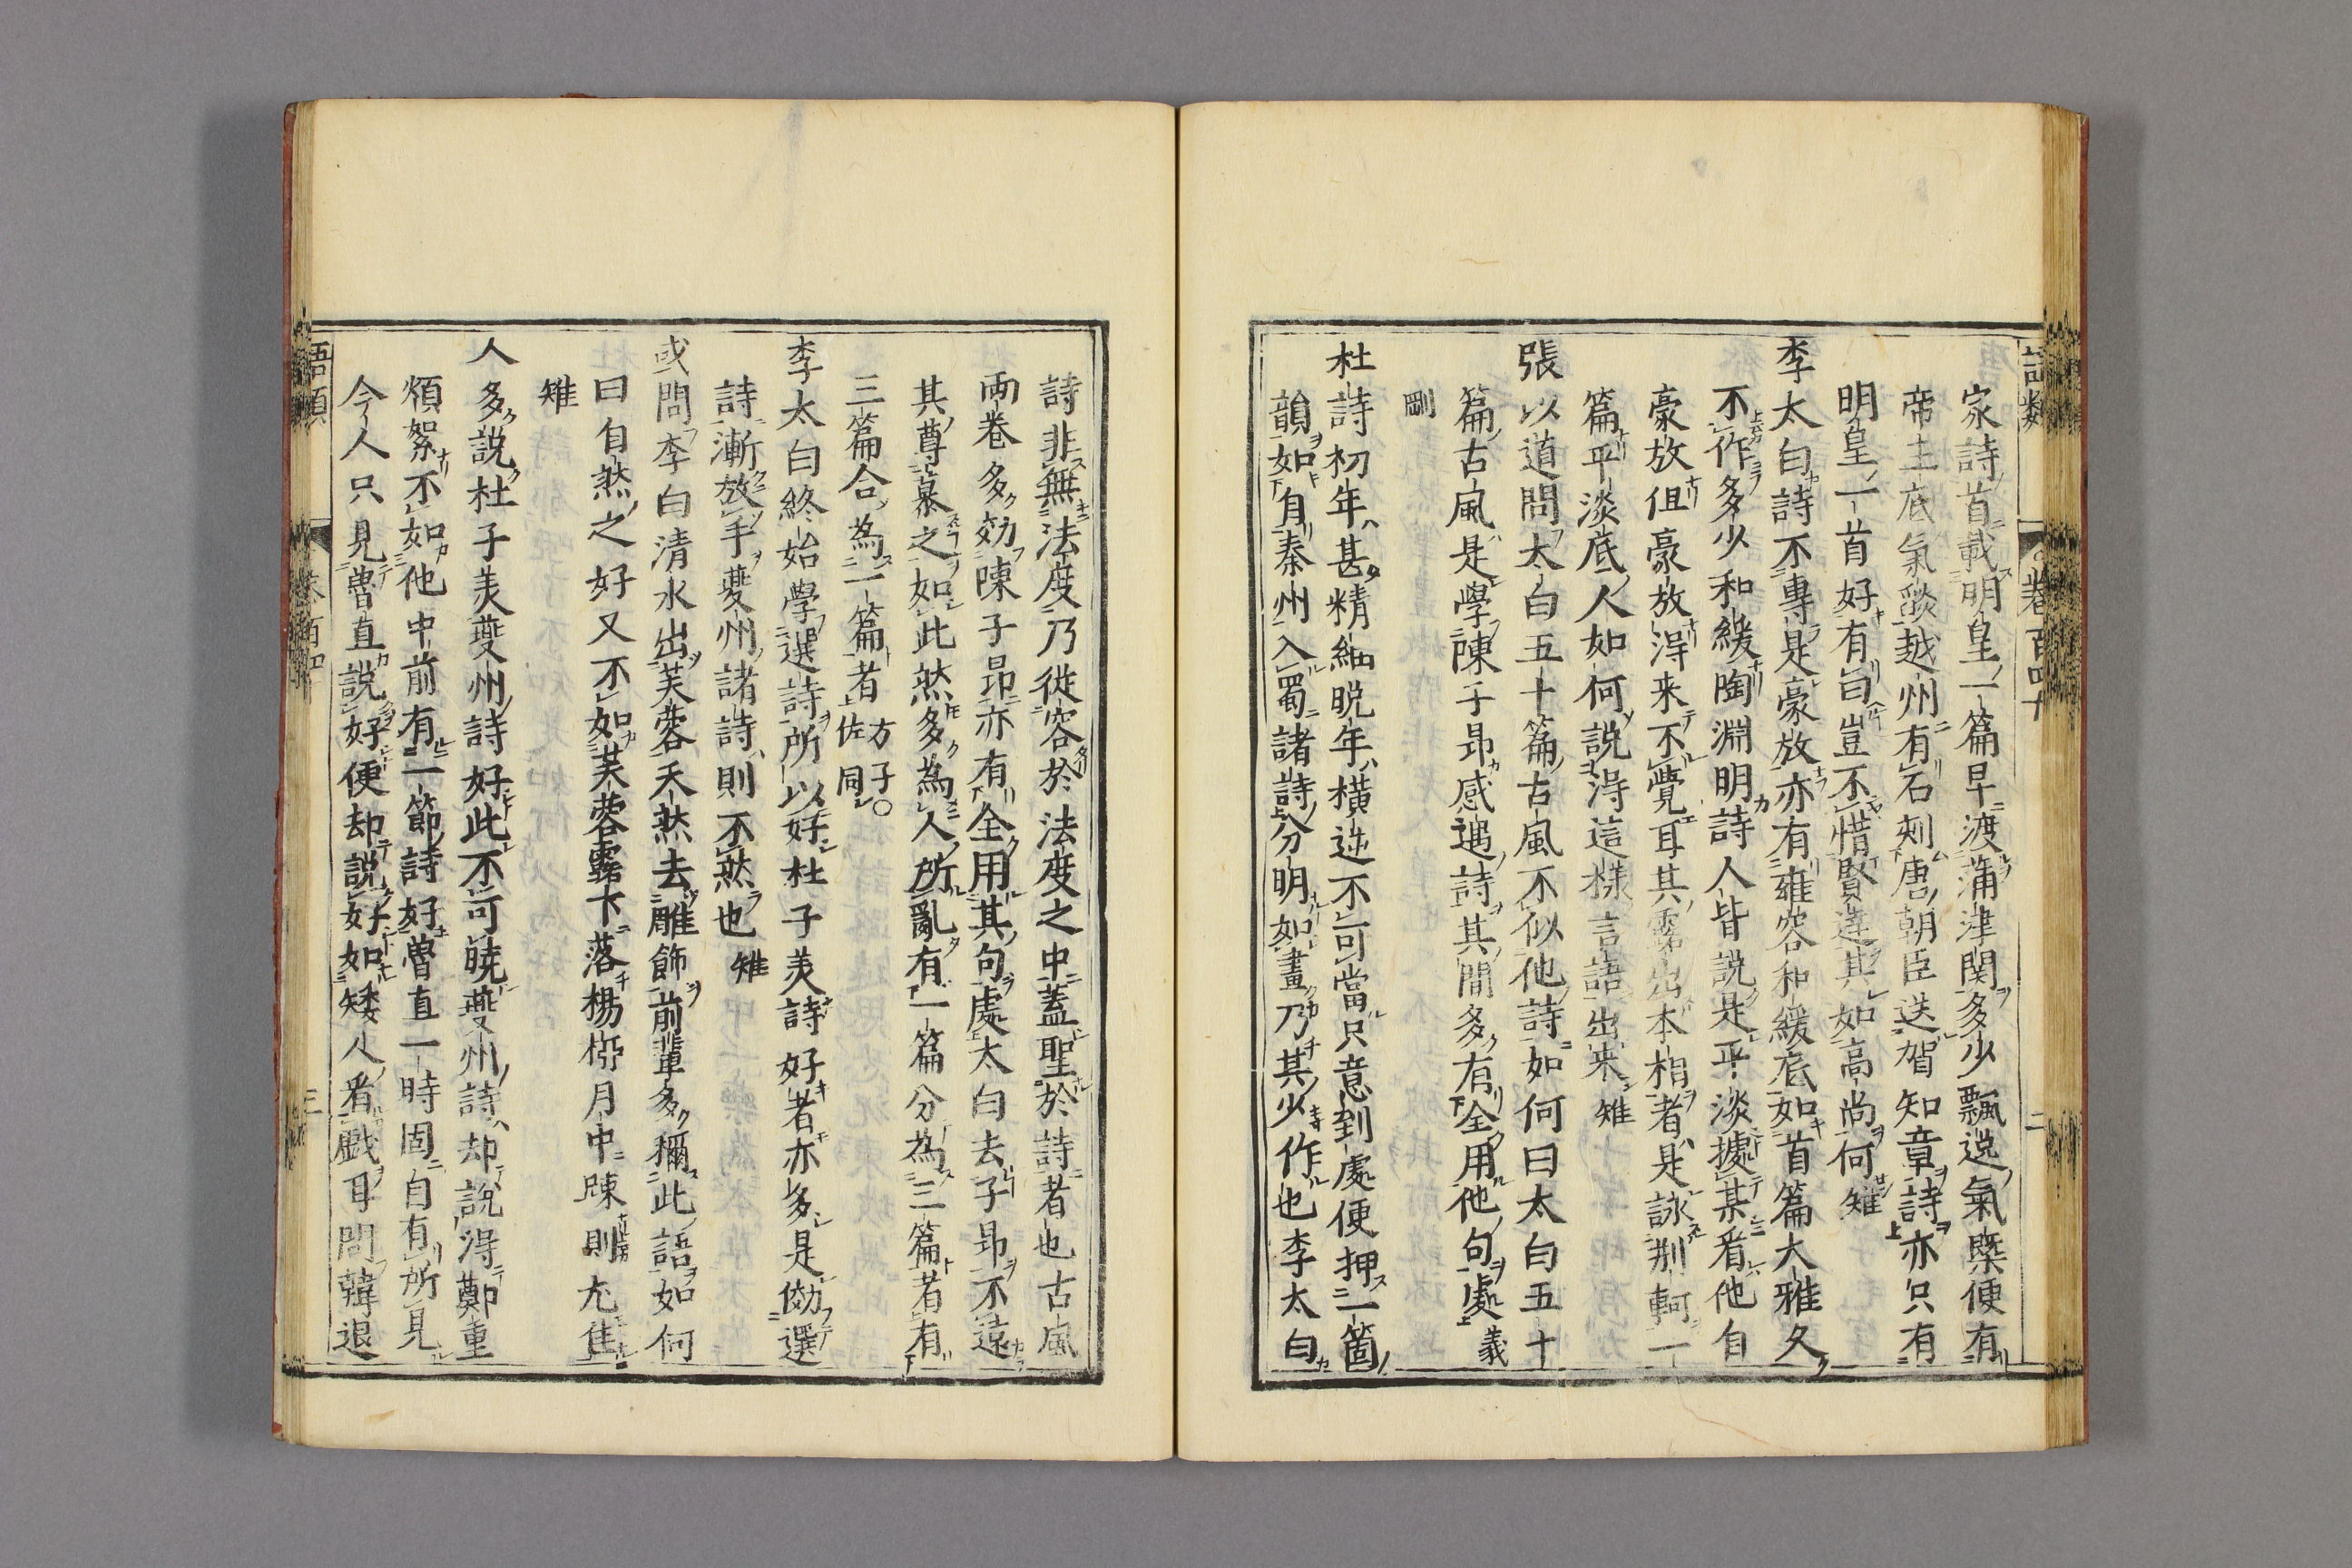 語類 卷百四十 二
家詩首載明皇一篇早渡蒲津関多少飄逸氣槩便有
帝王底氣燄越州有石刻唐朝臣送賀知章詩亦只有
明皇一首好有曰豈不惜賢達其如高尚何 雉
李太白詩不專是豪放亦有雍容和緩底如首篇大雅久
不作多少和緩陶淵明詩人皆説是平淡據某看他自
豪放但豪放得来不覺耳其露出本相者是詠荆軻一
篇平淡底人如何説得這様言語出来 雉
張以道問太白五十篇古風不似他詩如何曰太白五十
篇古風是學陳子昂感遇詩其間多有全用他句處 義
剛
杜詩初年甚精細晩年横逆不可當只意到處便押一箇
韻如自秦州入蜀諸詩分明如畫乃其少作也李太白
詩非無法度乃從容於法度之中蓋聖於詩者也古風
兩卷多効陳子昂亦有全用其句處太白去子昂不遠
其尊慕之如此然多為人所亂有一篇分為三篇者有
三篇合為一篇者 方子○佐同
李太白終始學選詩所以好杜子美詩好者亦多是傚選
詩漸放手夔州諸詩則不然也 雉
或問李白清水出芙蓉天然去雕飾前輩多稱此語如何
曰自然之好又不如芙蓉露下落楊栁月中踈則尤佳
雉
人多説杜子美夔州詩好此不可曉夔州詩却説得鄭重
煩絮不如他中前有一節詩好曾直一時固自有所見
今人只見曾直説好便却説好如矮人看戯耳問韓退
語類 卷百四 三